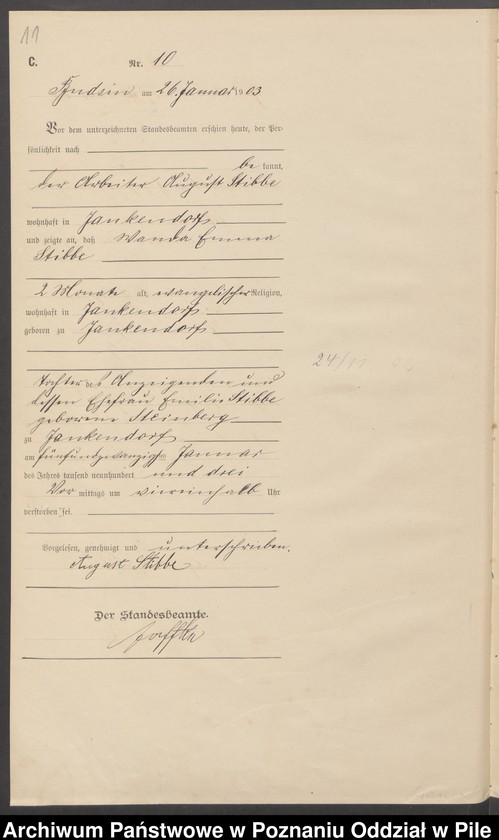 11
C.
Nr. 10
am 26. Januar 1903
Vor dem unterzeichneten Standesbeamten erschien heute, der Per-
sönlichkeit nach
be kannt,
der Arbeiter August Stibbe
wohnhaft in Jankendorf
und zeigte an, daß Wanda Emma
Stibbe
2 Monate alt, evangelischer Religion,
wohnhaft in Jankendorf
geboren zu Jankendorf
24/11 02
Tochter des Anzeigenden und
dessen Ehefrau Emilie Stibbe
geborene Steinberg
zu Jankendorf
am fünfundzwanzigsten Januar
des Jahres tausend neunhundert und drei
Vor mittags um viereinhalb Uhr
verstorben sei.
Vorgelesen, genehmigt und unterschrieben.
August Stibbe
Der Standesbeamte.
Archiwum Państwowe w Poznaniu Oddział w Pile